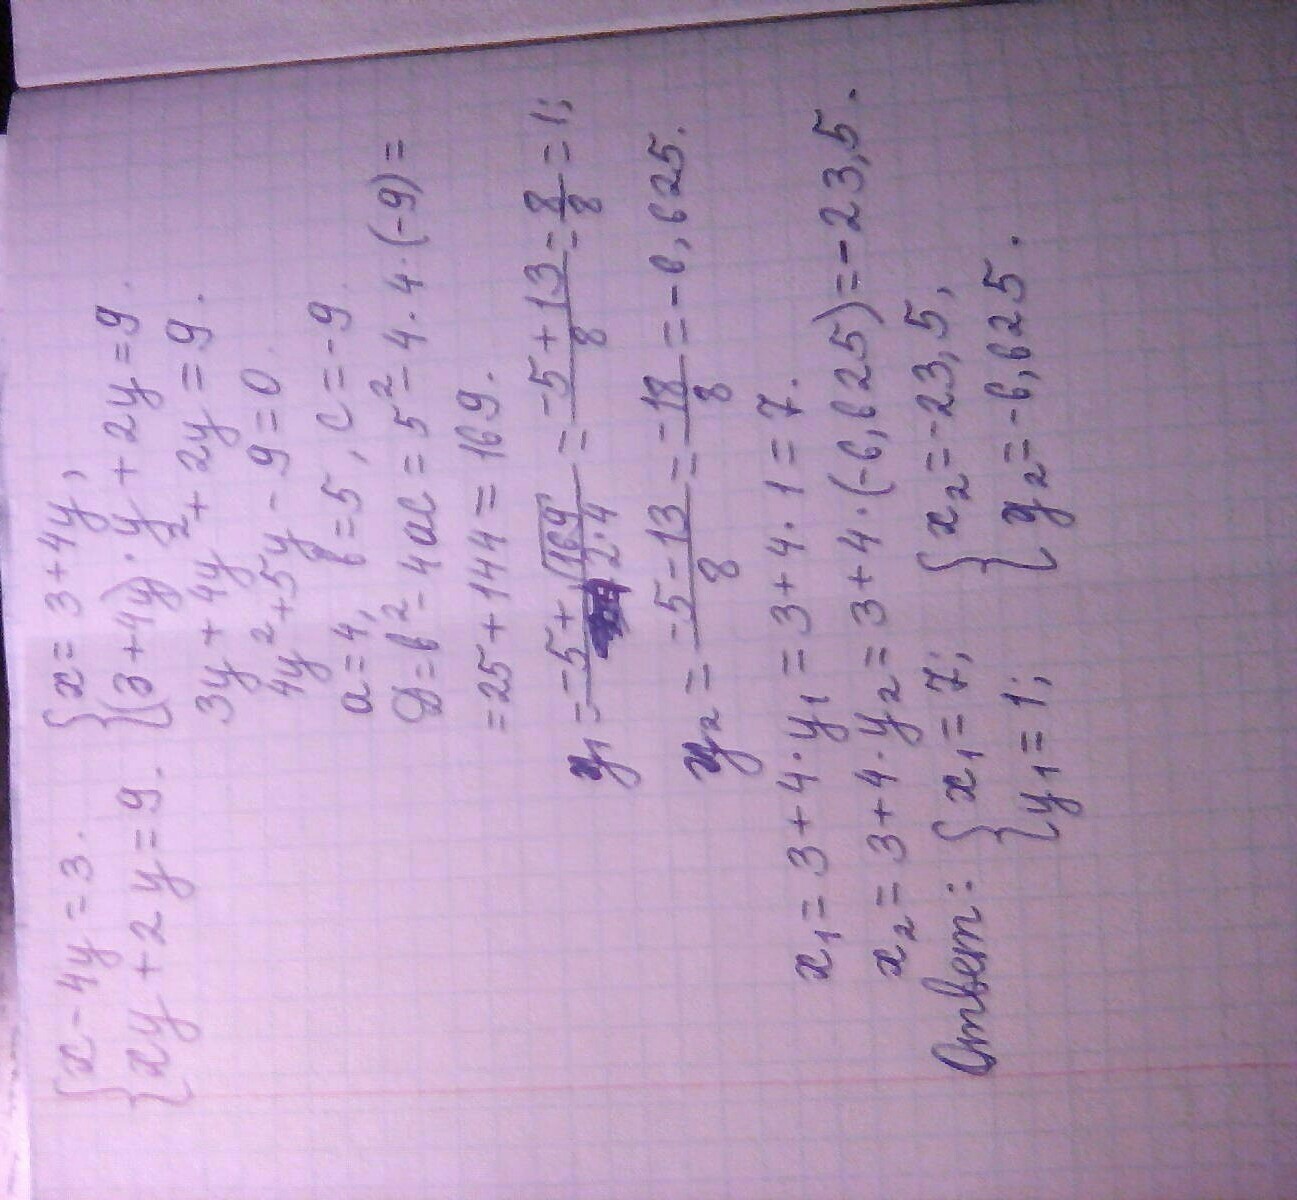 {x - 4y = 3. {x = 3 + 4y,
{xy + 2y = 9. {(3 + 4y) · y + 2y = 9.
3y + 4y² + 2y = 9.
4y² + 5y - 9 = 0.
a = 4, b = 5, c = -9.
D = b² - 4ac = 5² - 4 · 4 · (-9) =
= 25 + 144 = 169.
y₁ = (-5 + √169)/(2 · 4) = (-5 + 13)/8 = 8/8 = 1;
y₂ = (-5 - 13)/8 = -18/8 = -6,625.
x₁ = 3 + 4 · y₁ = 3 + 4 · 1 = 7.
x₂ = 3 + 4 · y₂ = 3 + 4 · (-6,625) = -23,5.
Ответ: {x₁ = 7; {x₂ = -23,5,
{y₁ = 1; {y₂ = -6,625.